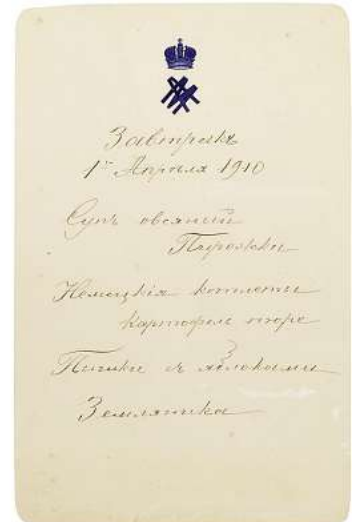 Завтракъ
1го Апрѣля 1910
Супъ овсяный
Пирожки
Нѣмецкія котлеты
картофель пюре
Пышки съ яблоками
Земляника